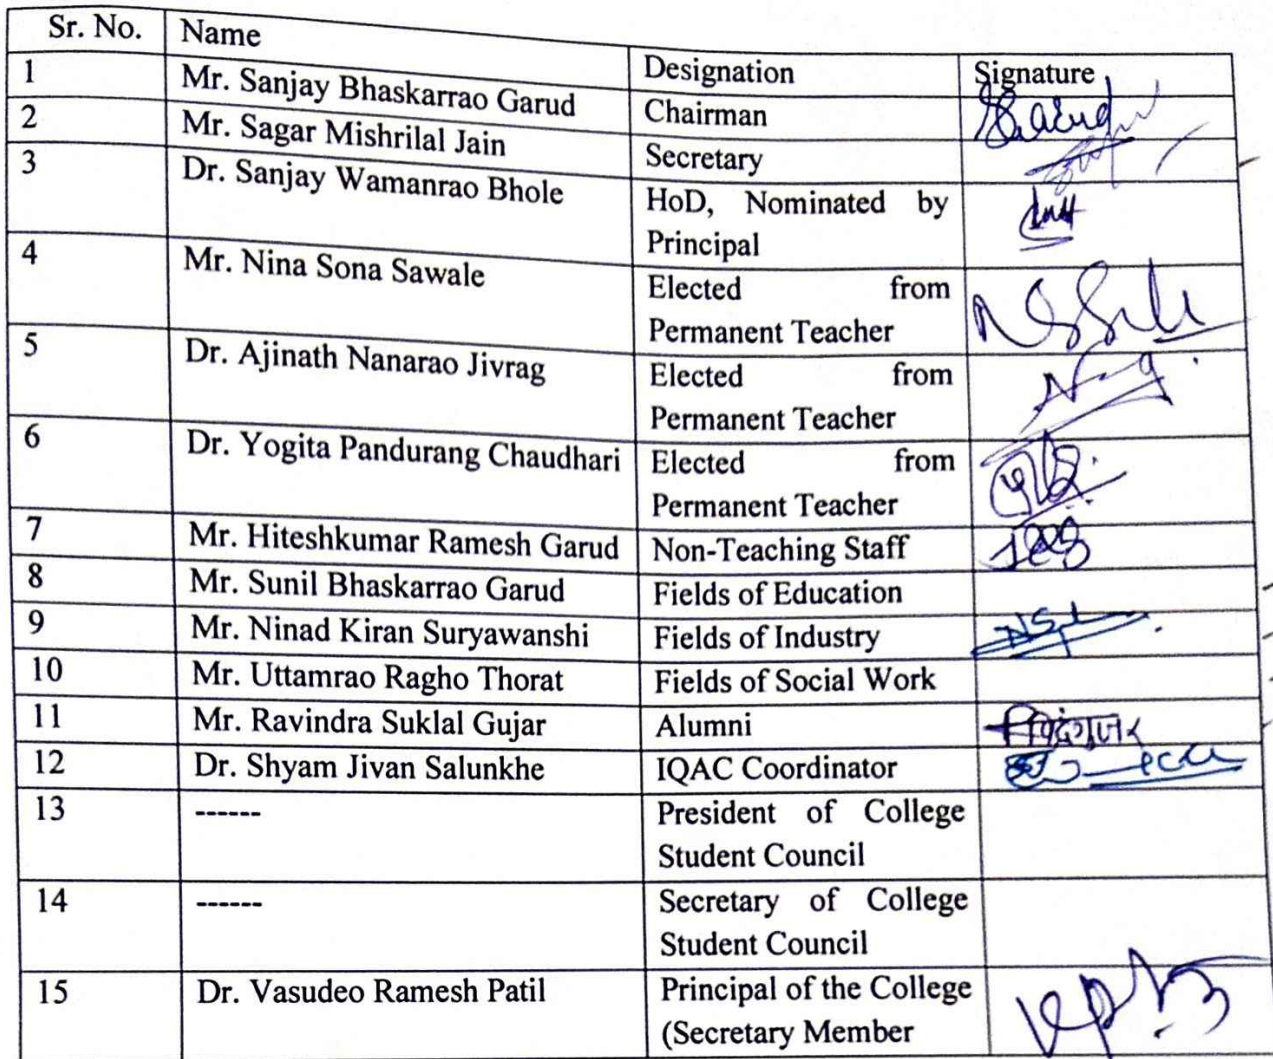 Sr. No. Name Designation Signature
1 Mr. Sanjay Bhaskarrao Garud Chairman
2 Mr. Sagar Mishrilal Jain Secretary
3 Dr. Sanjay Wamanrao Bhole HoD, Nominated by
Principal
4 Mr. Nina Sona Sawale Elected from
Permanent Teacher
5 Dr. Ajinath Nanarao Jivrag Elected from
Permanent Teacher
6 Dr. Yogita Pandurang Chaudhari Elected from
Permanent Teacher
7 Mr. Hiteshkumar Ramesh Garud Non-Teaching Staff
8 Mr. Sunil Bhaskarrao Garud Fields of Education
9 Mr. Ninad Kiran Suryawanshi Fields of Industry
10 Mr. Uttamrao Ragho Thorat Fields of Social Work
11 Mr. Ravindra Suklal Gujar Alumni
12 Dr. Shyam Jivan Salunkhe IQAC Coordinator
13 ------ President of College
Student Council
14 ------ Secretary of College
Student Council
15 Dr. Vasudeo Ramesh Patil Principal of the College
(Secretary Member